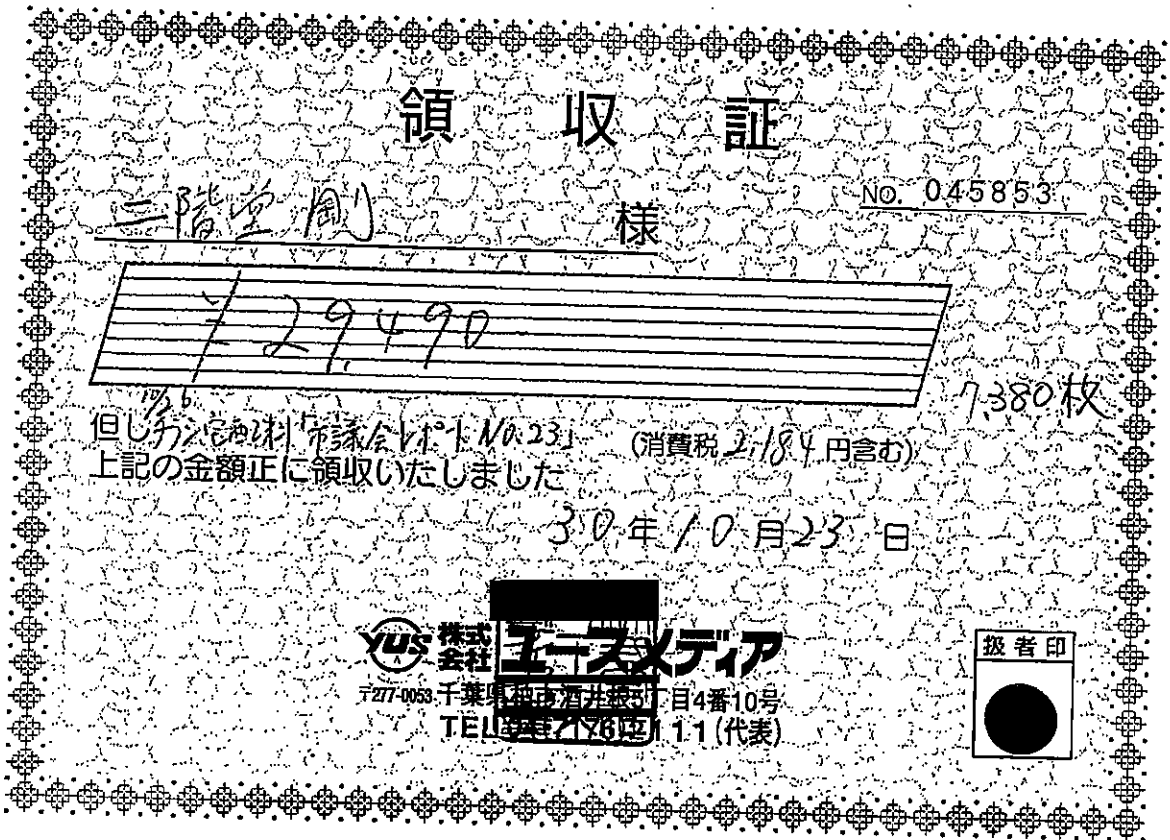 領収証
No. 045853
二階堂 剛 様
¥29,490
7,380枚
10/26
但しチラシ宅配料「市議会レポートNo.23」 (消費税 2,184 円含む)
上記の金額正に領収いたしました
30年10月23日
YUS 株式会社 ユースメディア
〒277-0053 千葉県柏市酒井根5丁目4番10号
TEL 111(代表)
扱者印